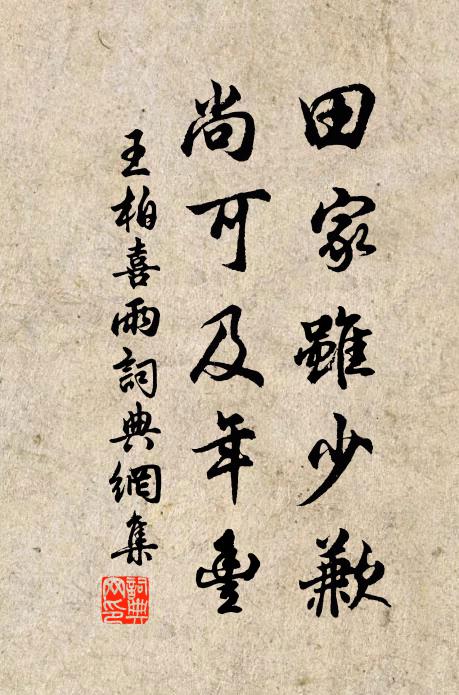 田家雖少歉
尚可及年豐
王柏喜雨詞典網集
詞典网印